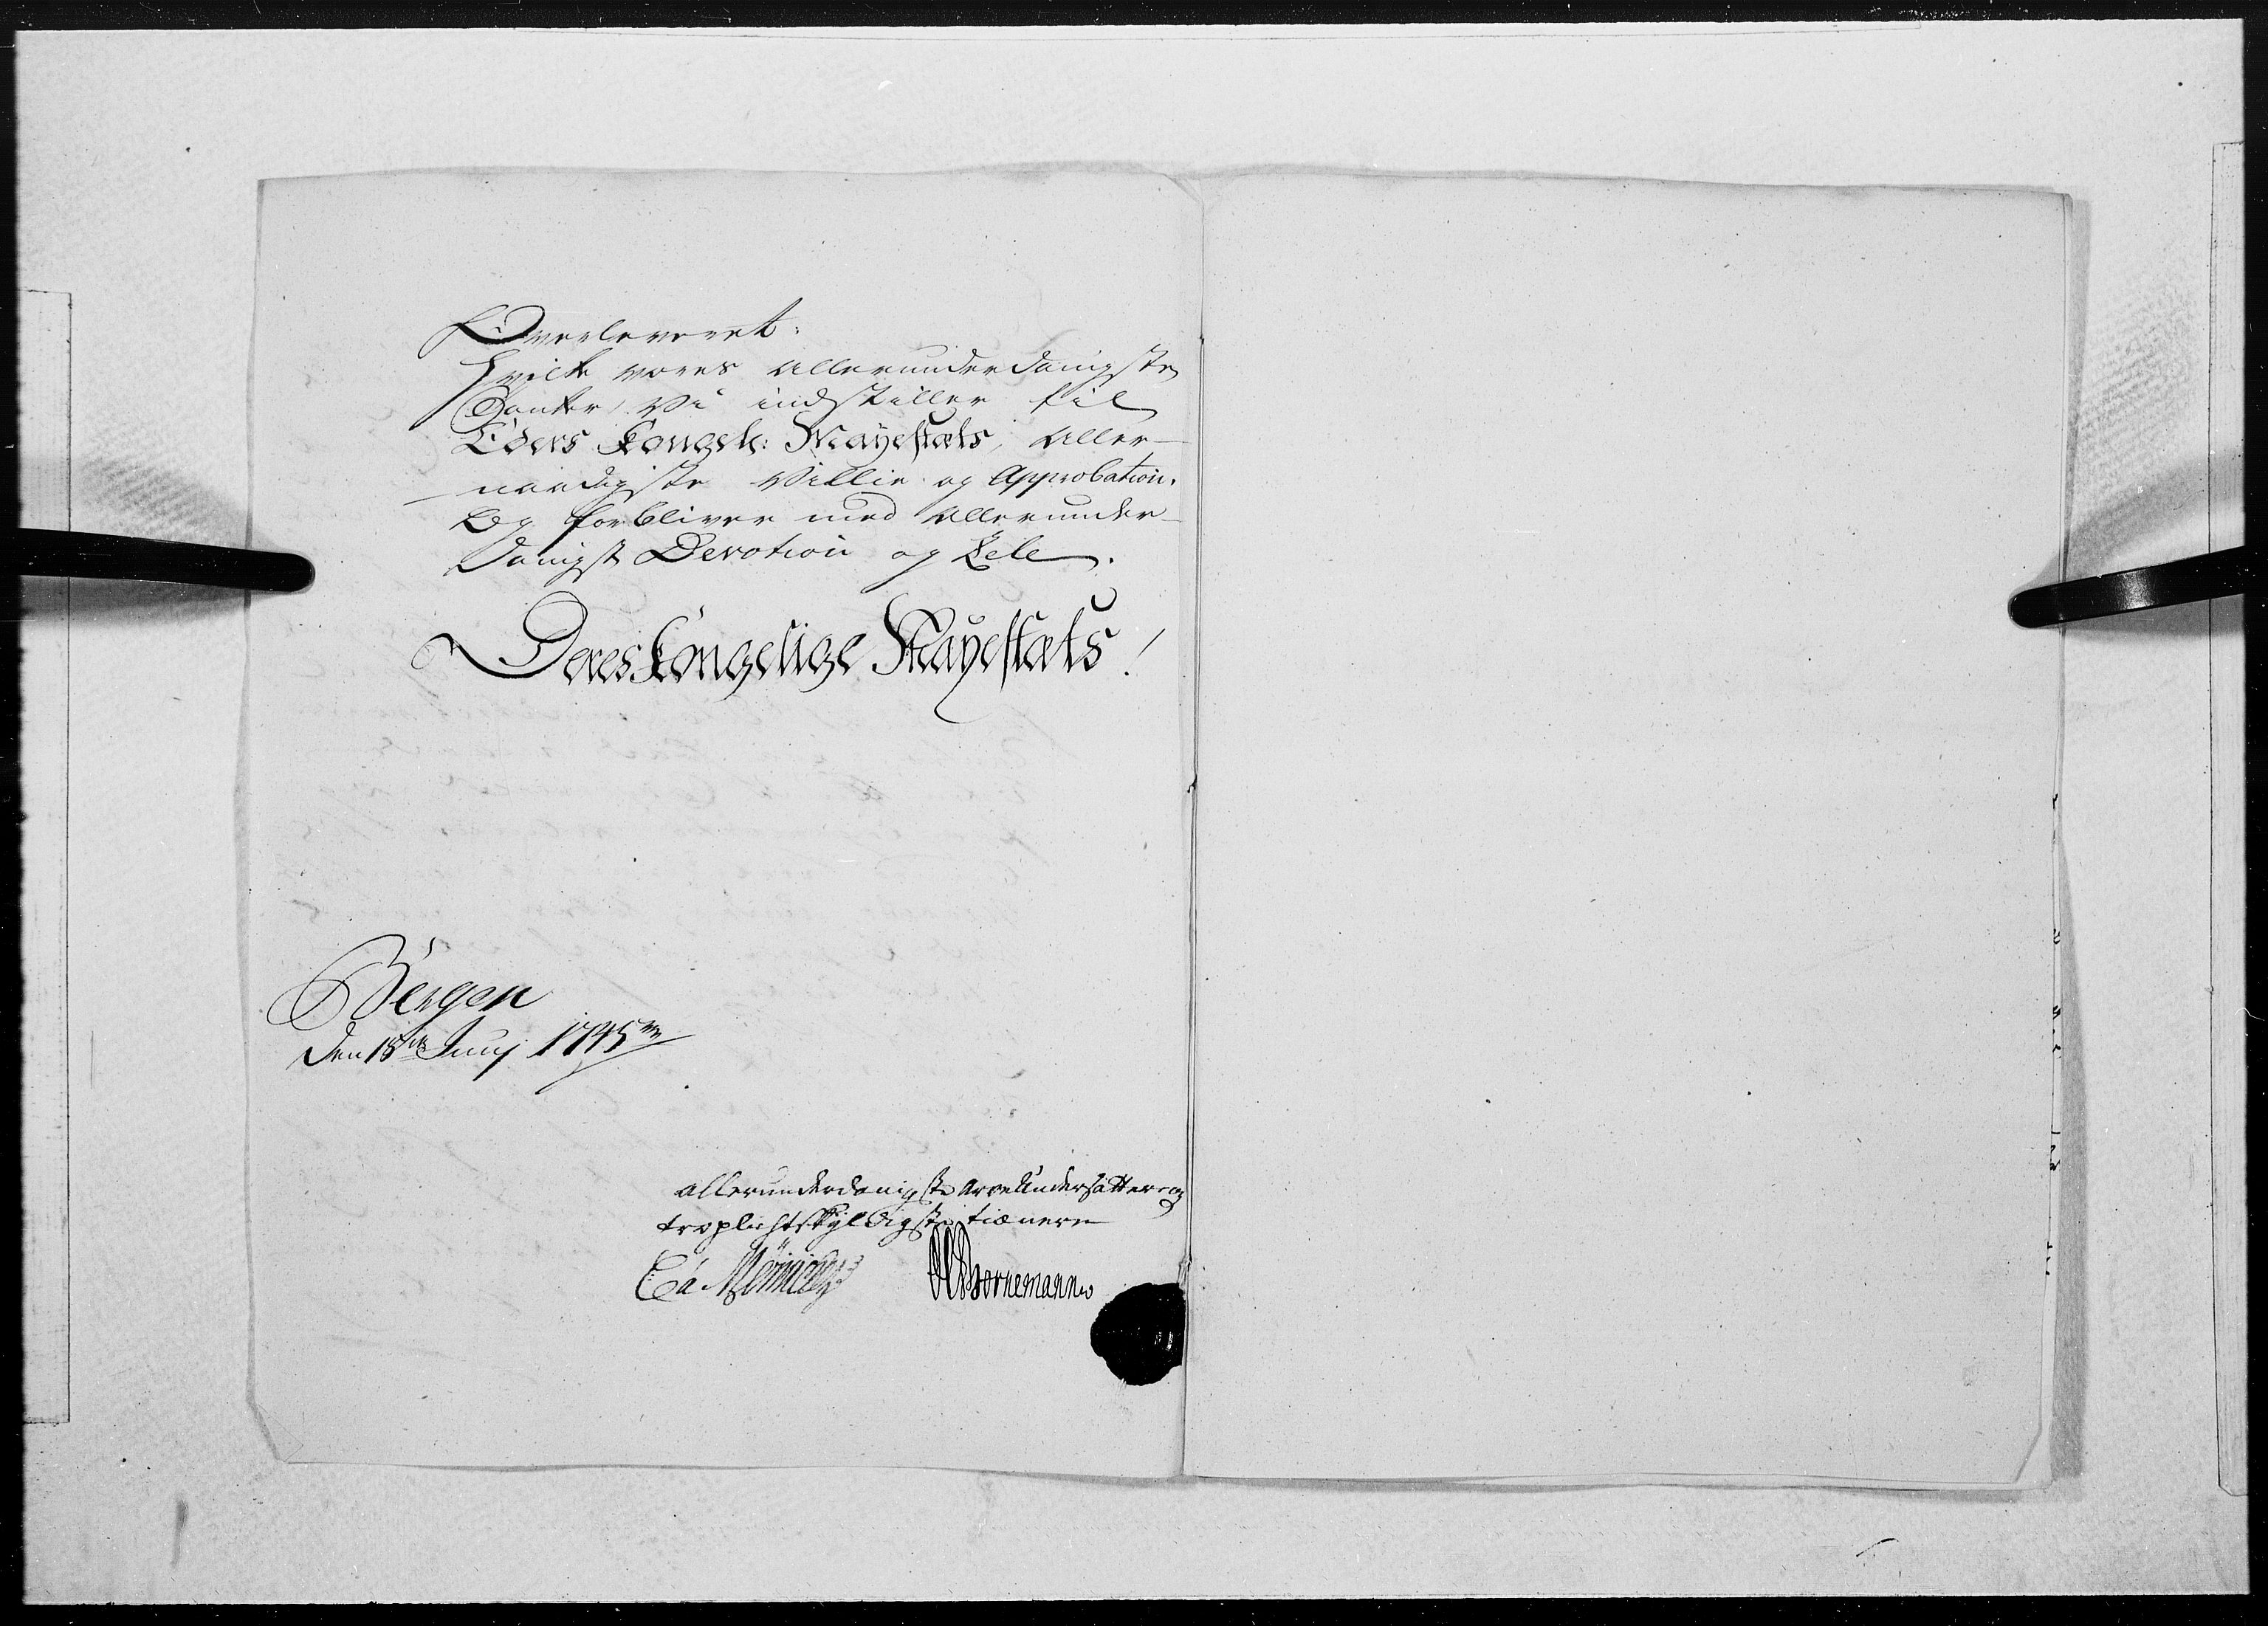 Overleveret.
Hvilke vores allerunderdanigste
Tanker, Vi indstiller til
Eders Kongel: Mayestæts, aller-
naadigste Villie og Approbation.
Og forbliver med allerunder-
danigst Devotion og Zele.
Deres Kongelige Mayestæts!
Bergen
den 18de Junj 1745
allerunderdanigste arve Undersåtter og
tropligtskyldigste tienere
Bornemann